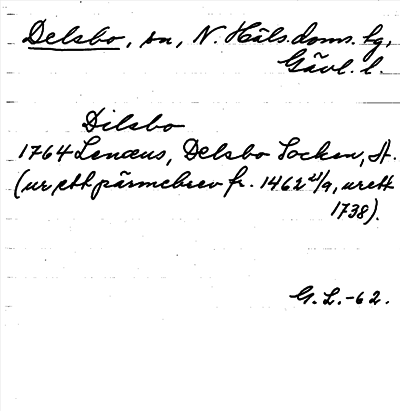 Delsbo, sn, N. Häls. doms. hg,
Gävl. l.
Dilsbo
1764 Lenæus, Delsbo Socken, A.
(ur ett pärmebrev fr. 1462 21/9, ur ett
1738).
G. L. -62.